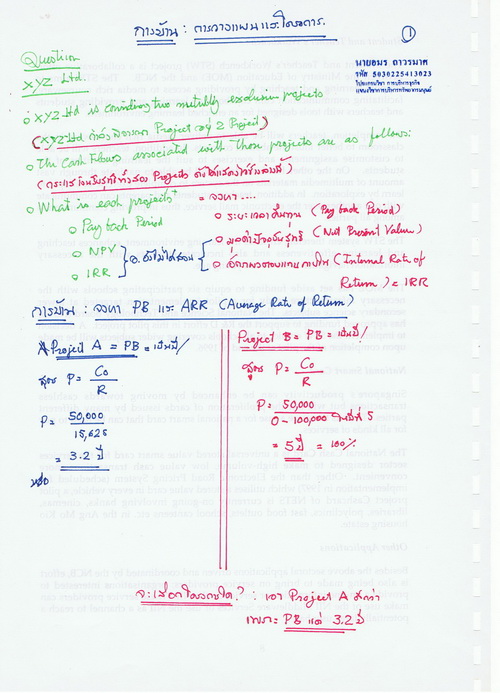 การบ้าน : การวางแผนและโครงการ.
1
นายอมร ถาวรมาศ
รหัส 5030225413023
โปรแกรมวิชา การบริหารธุรกิจ
แขนงวิชาการบริหารทรัพยากรมนุษย์
Question
XYZ Ltd.
XYZ Ltd is considing two
projects
(XYZ Ltd กำลังพิจารณา Project อยู่ 2 Project)
The Cash Flows associated with Those projects are as follows:
(กระแสเงินรับสุทธิทั้งสอง Projects ดังได้แสดงไว้ข้างล่างนี้)
What is each projects' = จงหา ....
Pay back Period
ระยะเวลาคืนทุน (Pay back Period)
NPV
อ. ยังไม่ได้สอน
มูลค่าปัจจุบันสุทธิ (Net Present Value)
IRR
อัตราผลตอบแทนภายใน (Internal Rate of
Return) = IRR
การบ้าน : จงหา PB และ ARR (Average Rate of Return)
Project A = PB = เป็นปี/
สูตร P = Co
R
P = 50,000
15,625
= 3.2 ปี
Project B = PB = เป็นปี/
สูตร P = Co
R
P = 50,000
0 - 100,000 ในปีที่ 5
= 5 ปี = 100%
จะเลือกโครงการใด? : เอา Project A ดีกว่า
เพราะ PB แค่ 3.2 ปี